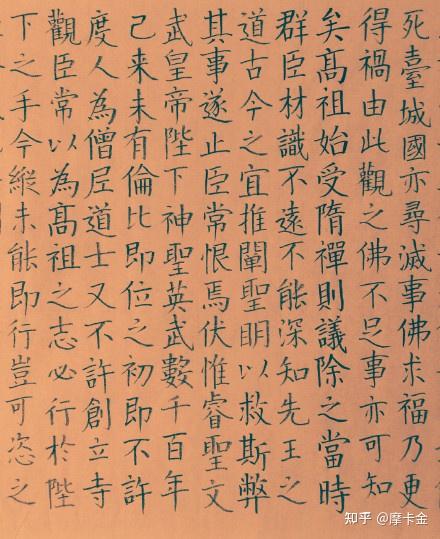 死臺城國亦尋滅事佛求福乃更
得禍由此觀之佛不足事亦可知
矣髙祖始受隋禪則議除之當時
群臣材識不遠不能深知先王之
道古今之宜推闡聖明以救斯弊
其事遂止臣常恨焉伏惟睿聖文
武皇帝陛下神聖英武數千百年
已来未有倫比即位之初即不許
度人為僧尼道士又不許創立寺
觀臣常以為髙祖之志必行於陛
下之手今縱未能即行豈可恣之
知乎 @摩卡金